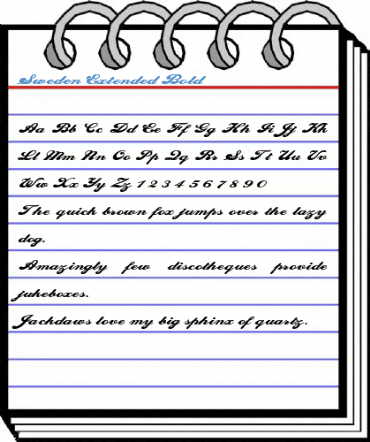 Sweden Extended Bold
Aa Bb Cc Dd Ee Ff Gg Hh Ii Jj Kk
Ll Mm Nn Oo Pp Qq Rr Ss Tt Uu Vv
Ww Xx Yy Zz 1 2 3 4 5 6 7 8 9 0
The quick brown fox jumps over the lazy
dog.
Amazingly few discotheques provide
jukeboxes.
Jackdaws love my big sphinx of quartz.